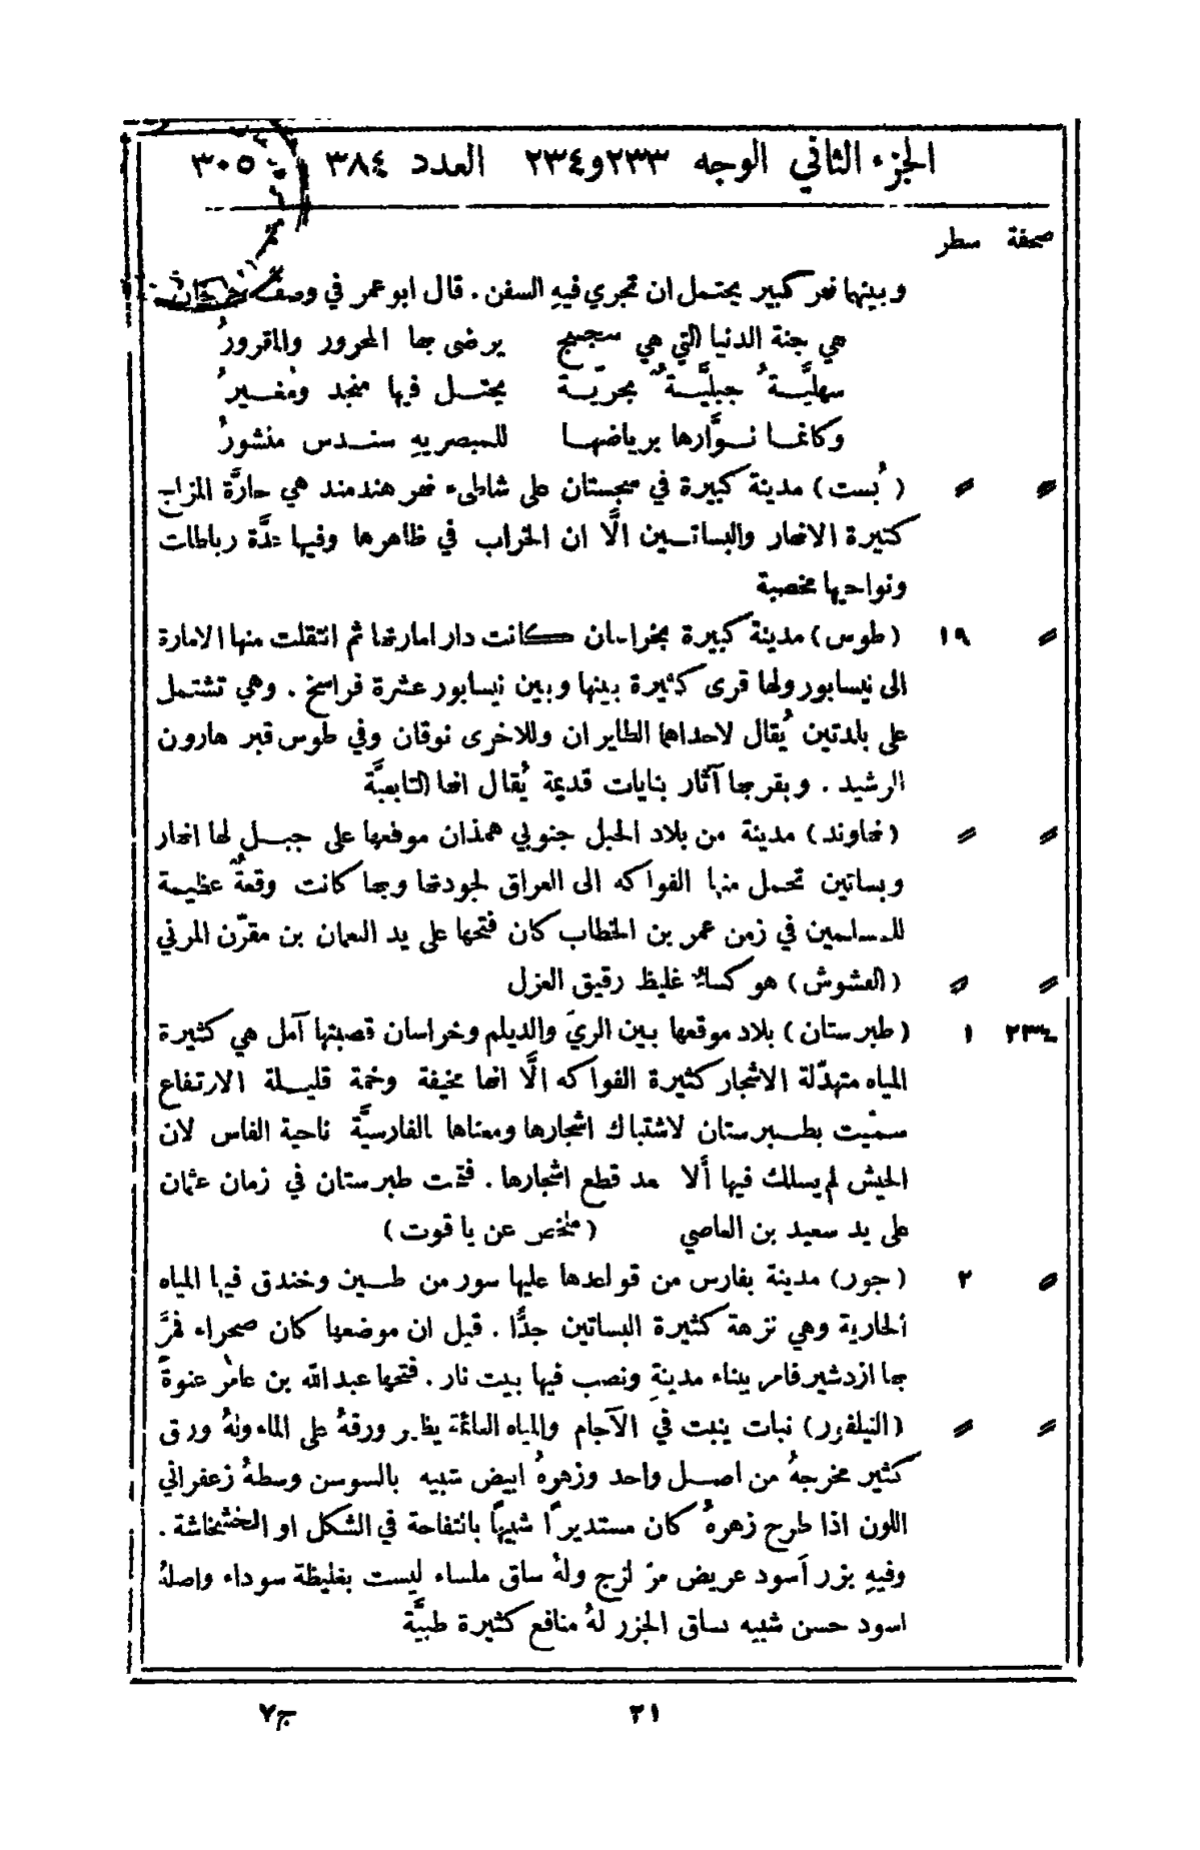 الجزء الثاني الوجه ٢٣٣و٢٣٤ العدد ٣٨٤ ٣٠٥
صحفة سطر
وبينها نهر كبير يحتمل ان تجري فيهِ السفن . قال ابو عمر في وصف جرجان
هي جنة الدنيا التي هي سجسج يرضى بها المحرور والمقرورُ
سهليَّةٌ جبليَّةٌ بحريّة يحتل فيها منجد ومُغيرُ
وكانما نوَّارها برياضها للمبصريهِ سندس منشورُ
〃 〃 (بُست) مدينة كبيرة في سجستان على شاطىء نهر هندمند هي حارَّة المزاج
كثيرة الانهار والبساتين الَّا ان الخراب في ظاهرها وفيها عدَّة رباطات
ونواحيها مخصبة
〃 ١٩ (طوس) مدينة كبيرة بخراسان كانت دار امارتها ثم انتقلت منها الامارة
الى نيسابور ولها قرى كثيرة بينها وبين نيسابور عشرة فراسخ . وهي تشتمل
على بلدتين يُقال لاحداهما الطابران وللاخرى نوقان وفي طوس قبر هارون
الرشيد . وبقربها آثار بنايات قديمة يُقال انها التابعيَّة
〃 〃 (نهاوند) مدينة من بلاد الجبل جنوبي همذان موقعها على جبل لها انهار
وبساتين تحمل منها الفواكه الى العراق لجودتها وبها كانت وقعةٌ عظيمة
للمسلمين في زمن عمر بن الخطاب كان فتحها على يد النعمان بن مقرّن المزني
〃 〃 (الفشوش) هو كساءٌ غليظ رقيق الغزل
٢٣٤ ١ (طبرستان) بلاد موقعها بين الريّ والديلم وخراسان قصبتها آمل هي كثيرة
المياه متهدّلة الاشجار كثيرة الفواكه الَّا انها مخيفة وخمة قليلة الارتفاع
سمّيت بطبرستان لاشتباك اشجارها ومعناها بالفارسيَّة ناحية الفاس لان
الجيش لم يسلك فيها ألا بعد قطع اشجارها . فتحت طبرستان في زمان عثمان
على يد سعيد بن العاصي (ملخص عن ياقوت)
〃 ٢ (جور) مدينة بفارس من قواعدها عليها سور من طين وخندق فيها المياه
الجارية وهي نزهة كثيرة البساتين جدًّا . قيل ان موضعها كان صحراء فمرَّ
بها ازدشير فامر ببناء مدينةٍ ونصب فيها بيت نار . فتحها عبد الله بن عامر عنوةً
〃 〃 (النيلفور) نبات ينبت في الآجام والمياه القائمة يظهر ورقهُ على الماء ولهُ ورق
كثير مخرجهُ من اصل واحد وزهرهُ ابيض شبيه بالسوسن وسطهُ زعفراني
اللون اذا طرح زهرهُ كان مستديرًا شبيهًا بالتفاحة في الشكل او الخشخاشة .
وفيهِ بزر اسود عريض مرّ لزج ولهُ ساق ملساء ليست بغليظة سوداء واصلهُ
اسود حسن شبيه بساق الجزر لهُ منافع كثيرة طبيَّة
٢١ ج٧